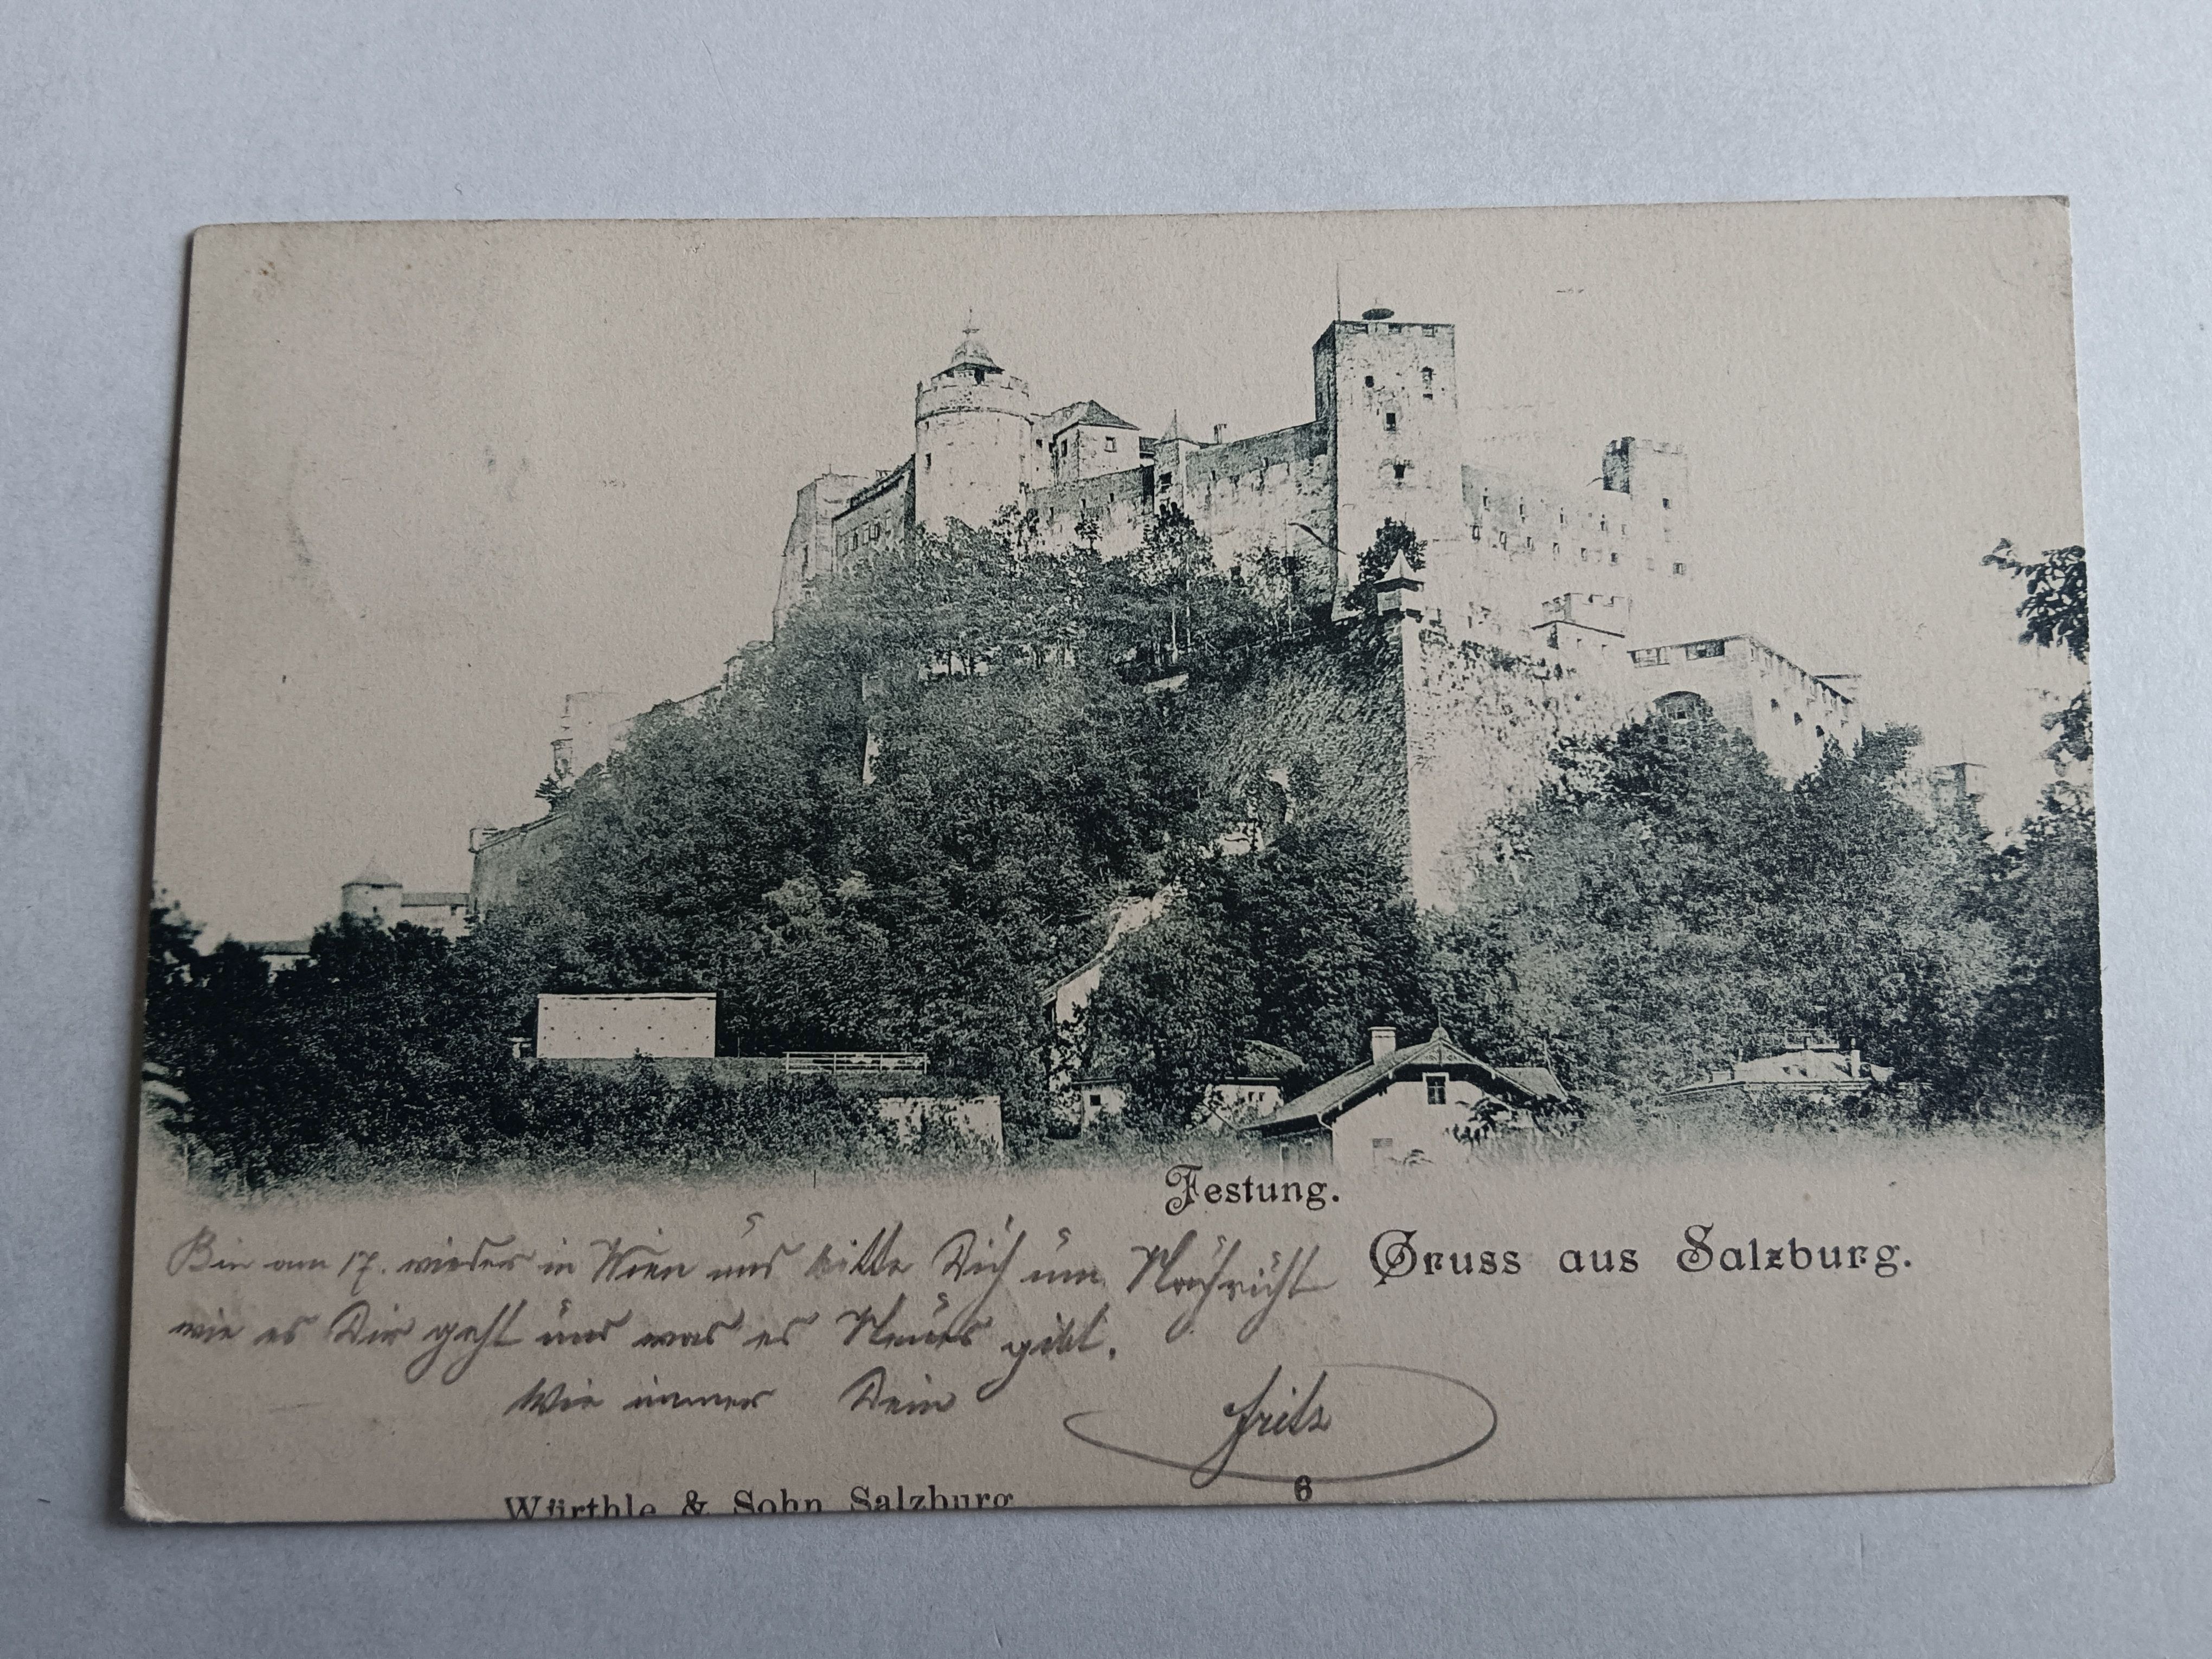 Festung.
Gruss aus Salzburg.
Bin am 17. wieder in Wien und bitte Dich um Nachricht
wie es Dir geht und was es Neues gibt.
Wie immer Dein Fritz
Würthle & Sohn Salzburg
6